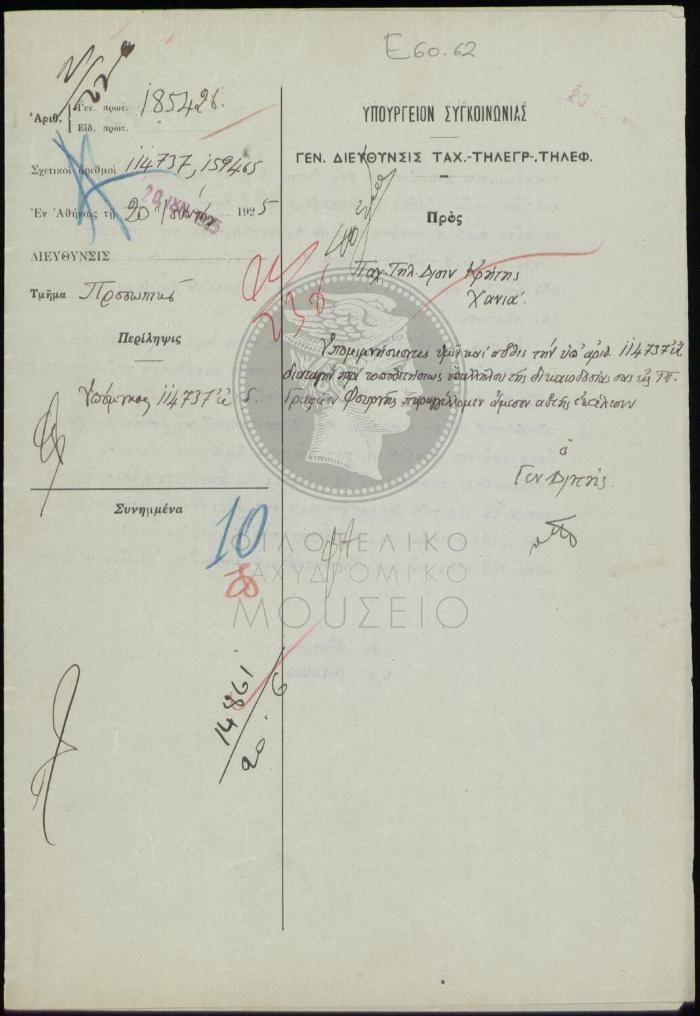 Ε60.62
Ἀριθ.
Γεν. πρωτ. 185426.
Εἰδ. πρωτ.
Σχετικοὶ ἀριθμοὶ 114737, 159465
Ἐν Ἀθήναις τῇ 20 1925
20 1925
ΔΙΕΥΘΥΝΣΙΣ
Τμῆμα Προσωπικοῦ
Περίληψις
114737
Συνημμένα
10
14861
20.6
23
ΥΠΟΥΡΓΕΙΟΝ ΣΥΓΚΟΙΝΩΝΙΑΣ
ΓΕΝ. ΔΙΕΥΘΥΝΣΙΣ ΤΑΧ.-ΤΗΛΕΓΡ-.ΤΗΛΕΦ.
Πρὸς
Ταχ. Τηλ. Δ)σιν Κρήτης
Χανιά.
Ὑπομιμνήσκοντες ὑμῖν καὶ αὖθις τὴν ὑπ' ἀριθ. 114737
διαταγὴν περὶ τοποθετήσεως ὑπαλλήλου τῆς δικαιοδοσίας σας εἰς ΤΤ.
Γραφεῖον Φουρνῆς παραγγέλλομεν ἄμεσον αὐτῆς ἐκτέλεσιν
ὁ
Γεν. Δ)τής.
ΦΙΛΟΤΕΛΙΚΟ
ΤΑΧΥΔΡΟΜΙΚΟ
ΜΟΥΣΕΙΟ